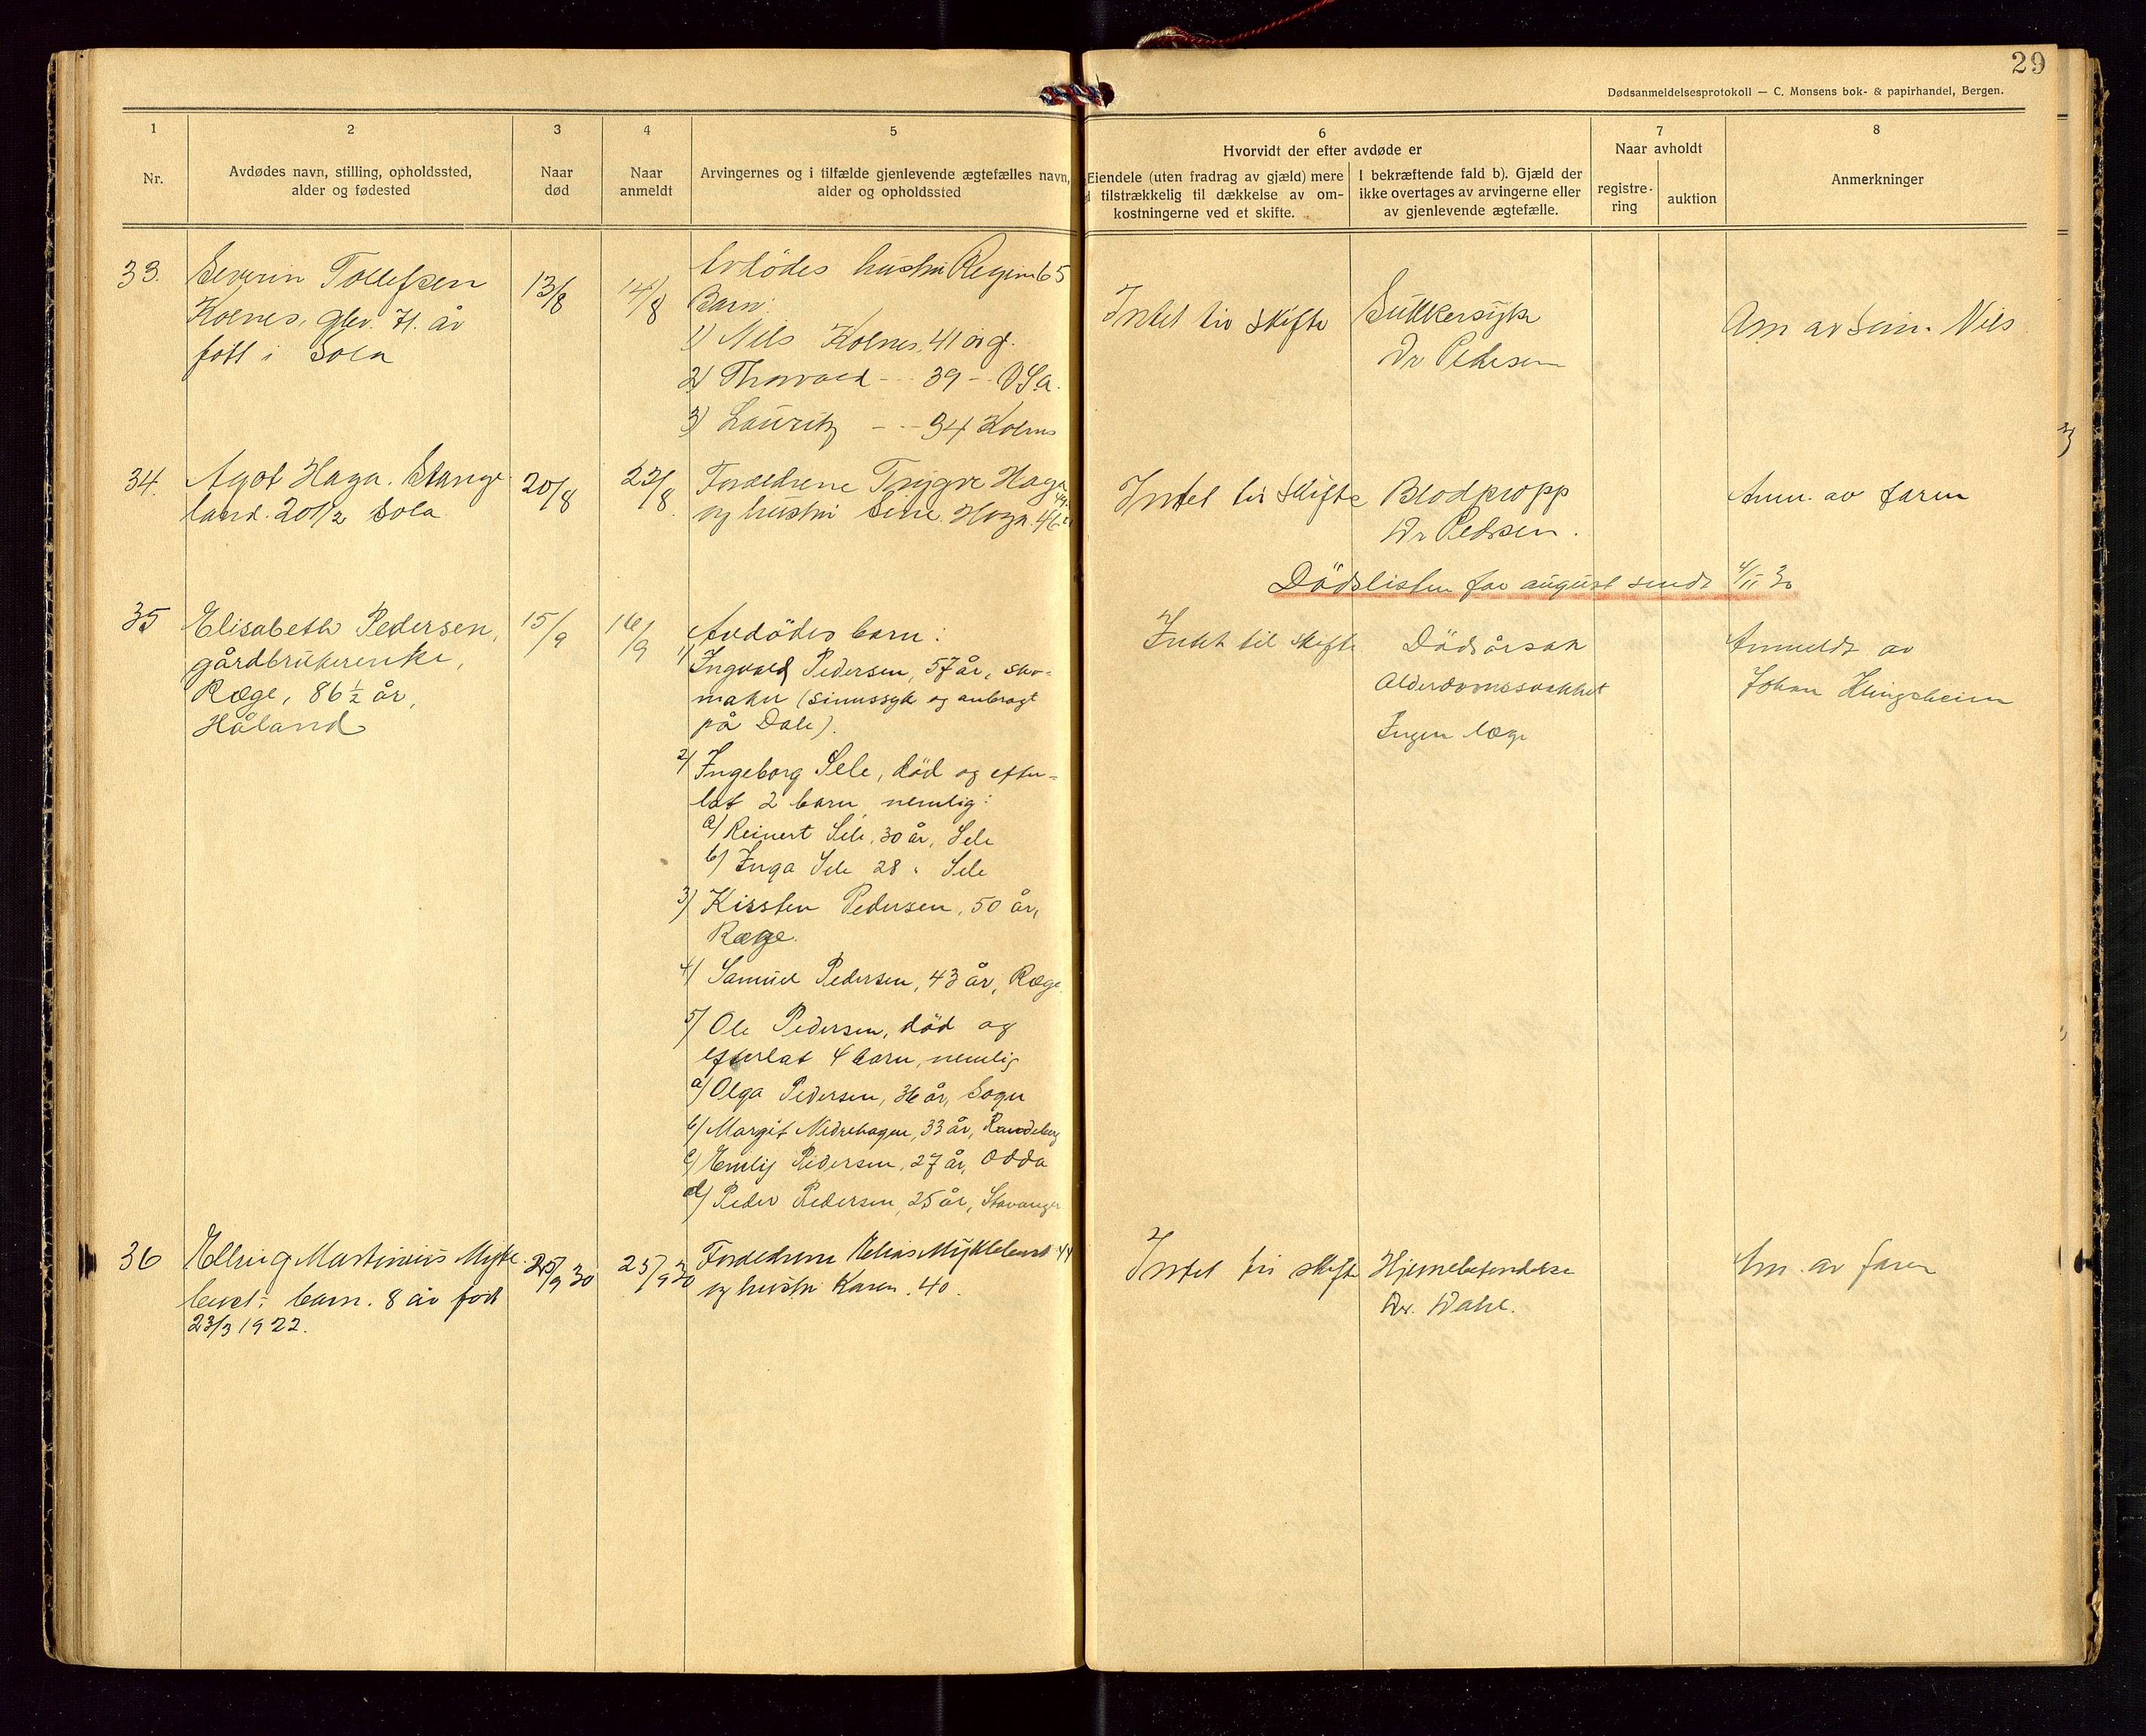 29
Dødsanmeldelsesprotokoll — C. Monsens bok- & papirhandel, Bergen.
1
Nr.
2
Avdødes navn, stilling, opholdssted,
alder og fødested
3
Naar
død
4
Naar
anmeldt
5
Arvingernes og i tilfælde gjenlevende ægtefælles navn,
alder og opholdssted
6
Hvorvidt der efter avdøde er
Eiendele (uten fradrag av gjæld) mere
tilstrækkelig til dækkelse av om-
kostningerne ved et skifte.
I bekræftende fald b). Gjæld der
ikke overtages av arvingerne eller
av gjenlevende ægtefælle.
7
Naar avholdt
registre-
ring
auktion
8
Anmerkninger
33.
Severin Tollefsen
Kolnes, gbr. 71. år
født i Sola
13/8
14/8
Avdødes hustru Regine 65
Barn:
1) Nils Kolnes, 41 år g.
2) Thorvald - - 39 - USA.
3) Lauritz - - 34 Kolnes
Intet til skifte
Sukkersyke
Dr Pedersen
Am av sønn. Nils
34.
Agot Haga. Stange
land. 20 1/2 Sola
20/8
22/8.
Foreldrene Trygve Haga
og hustru Sine Haga. 46
Intet til skifte
Blodpropp
Dr Pedersen.
Anm. av faren
Dødslisten for august sendt 4/11 30
35
Elisabeth Pedersen,
gårdbrukerenke,
Ræge, 86 ½ år,
Håland
15/9
16/9
Avdødes barn:
1) Ingvald Pedersen, 57 år, sko-
maker (sinnssyk og anbragt
på Dale).
2) Ingeborg Sele, død og efter-
lat 2 barn, nemlig:
a) Reinert Sele, 30 år, Sele
b) Inga Sele 28 " Sele
3) Kirsten Pedersen, 50 år,
Ræge.
4) Samuel Pedersen, 43 år, Ræge.
5) Ole Pedersen, død og
efterlat 4 barn, nemlig
a) Olga Pedersen, 36 år, Sogn
b) Margit Nedrehagen, 33 år, Randeberg
c) Emlij Pedersen, 27 år, Odda
d) Peder Pedersen, 25 år, Stavanger
Intet til skifte
Dødsårsak
Alderdomssvakhet
Ingen læge
Anmeldt av
Johan Klingsheim
36
Elling Martinius Mykle
bust: barn. 8 år født
23/3 1922.
25/9 30
25/9 30
Foreldrene Elias Myklebust 44
og hustru Karen. 40.
Intet til skifte
Hjernebetendelse
Dr. Dahl.
Am. av faren